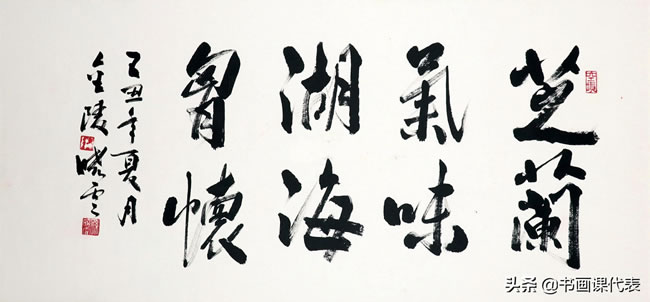 芝蘭
氣味
湖海
胷懷
己丑年夏月
金陵曉雲
头条 @书画课代表